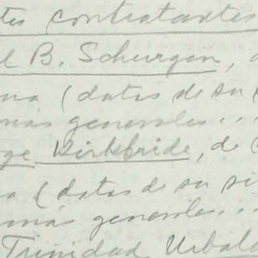 tes contratantes
l B. Schurgen,
na (datos de su
mas generales...
ge Kirkbride, de
a (datos de su si
má generales...
Trinidad Urbald